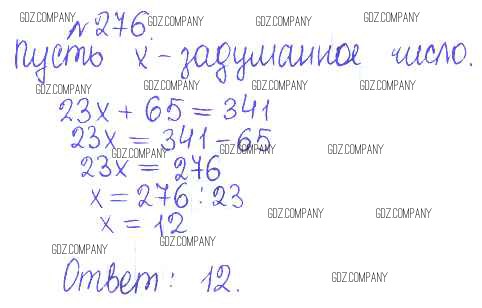 № 276.
Пусть x – задуманное число.
23x + 65 = 341
23x = 341 – 65
23x = 276
x = 276 : 23
x = 12
Ответ: 12.
GDZ.COMPANY GDZ.COMPANY GDZ.COMPANY GDZ.COMPANY
GDZ.COMPANY GDZ.COMPANY GDZ.COMPANY GDZ.COMPANY
GDZ.COMPANY GDZ.COMPANY GDZ.COMPANY
GDZ.COMPANY GDZ.COMPANY
GDZ.COMPANY GDZ.COMPANY
GDZ.COMPANY